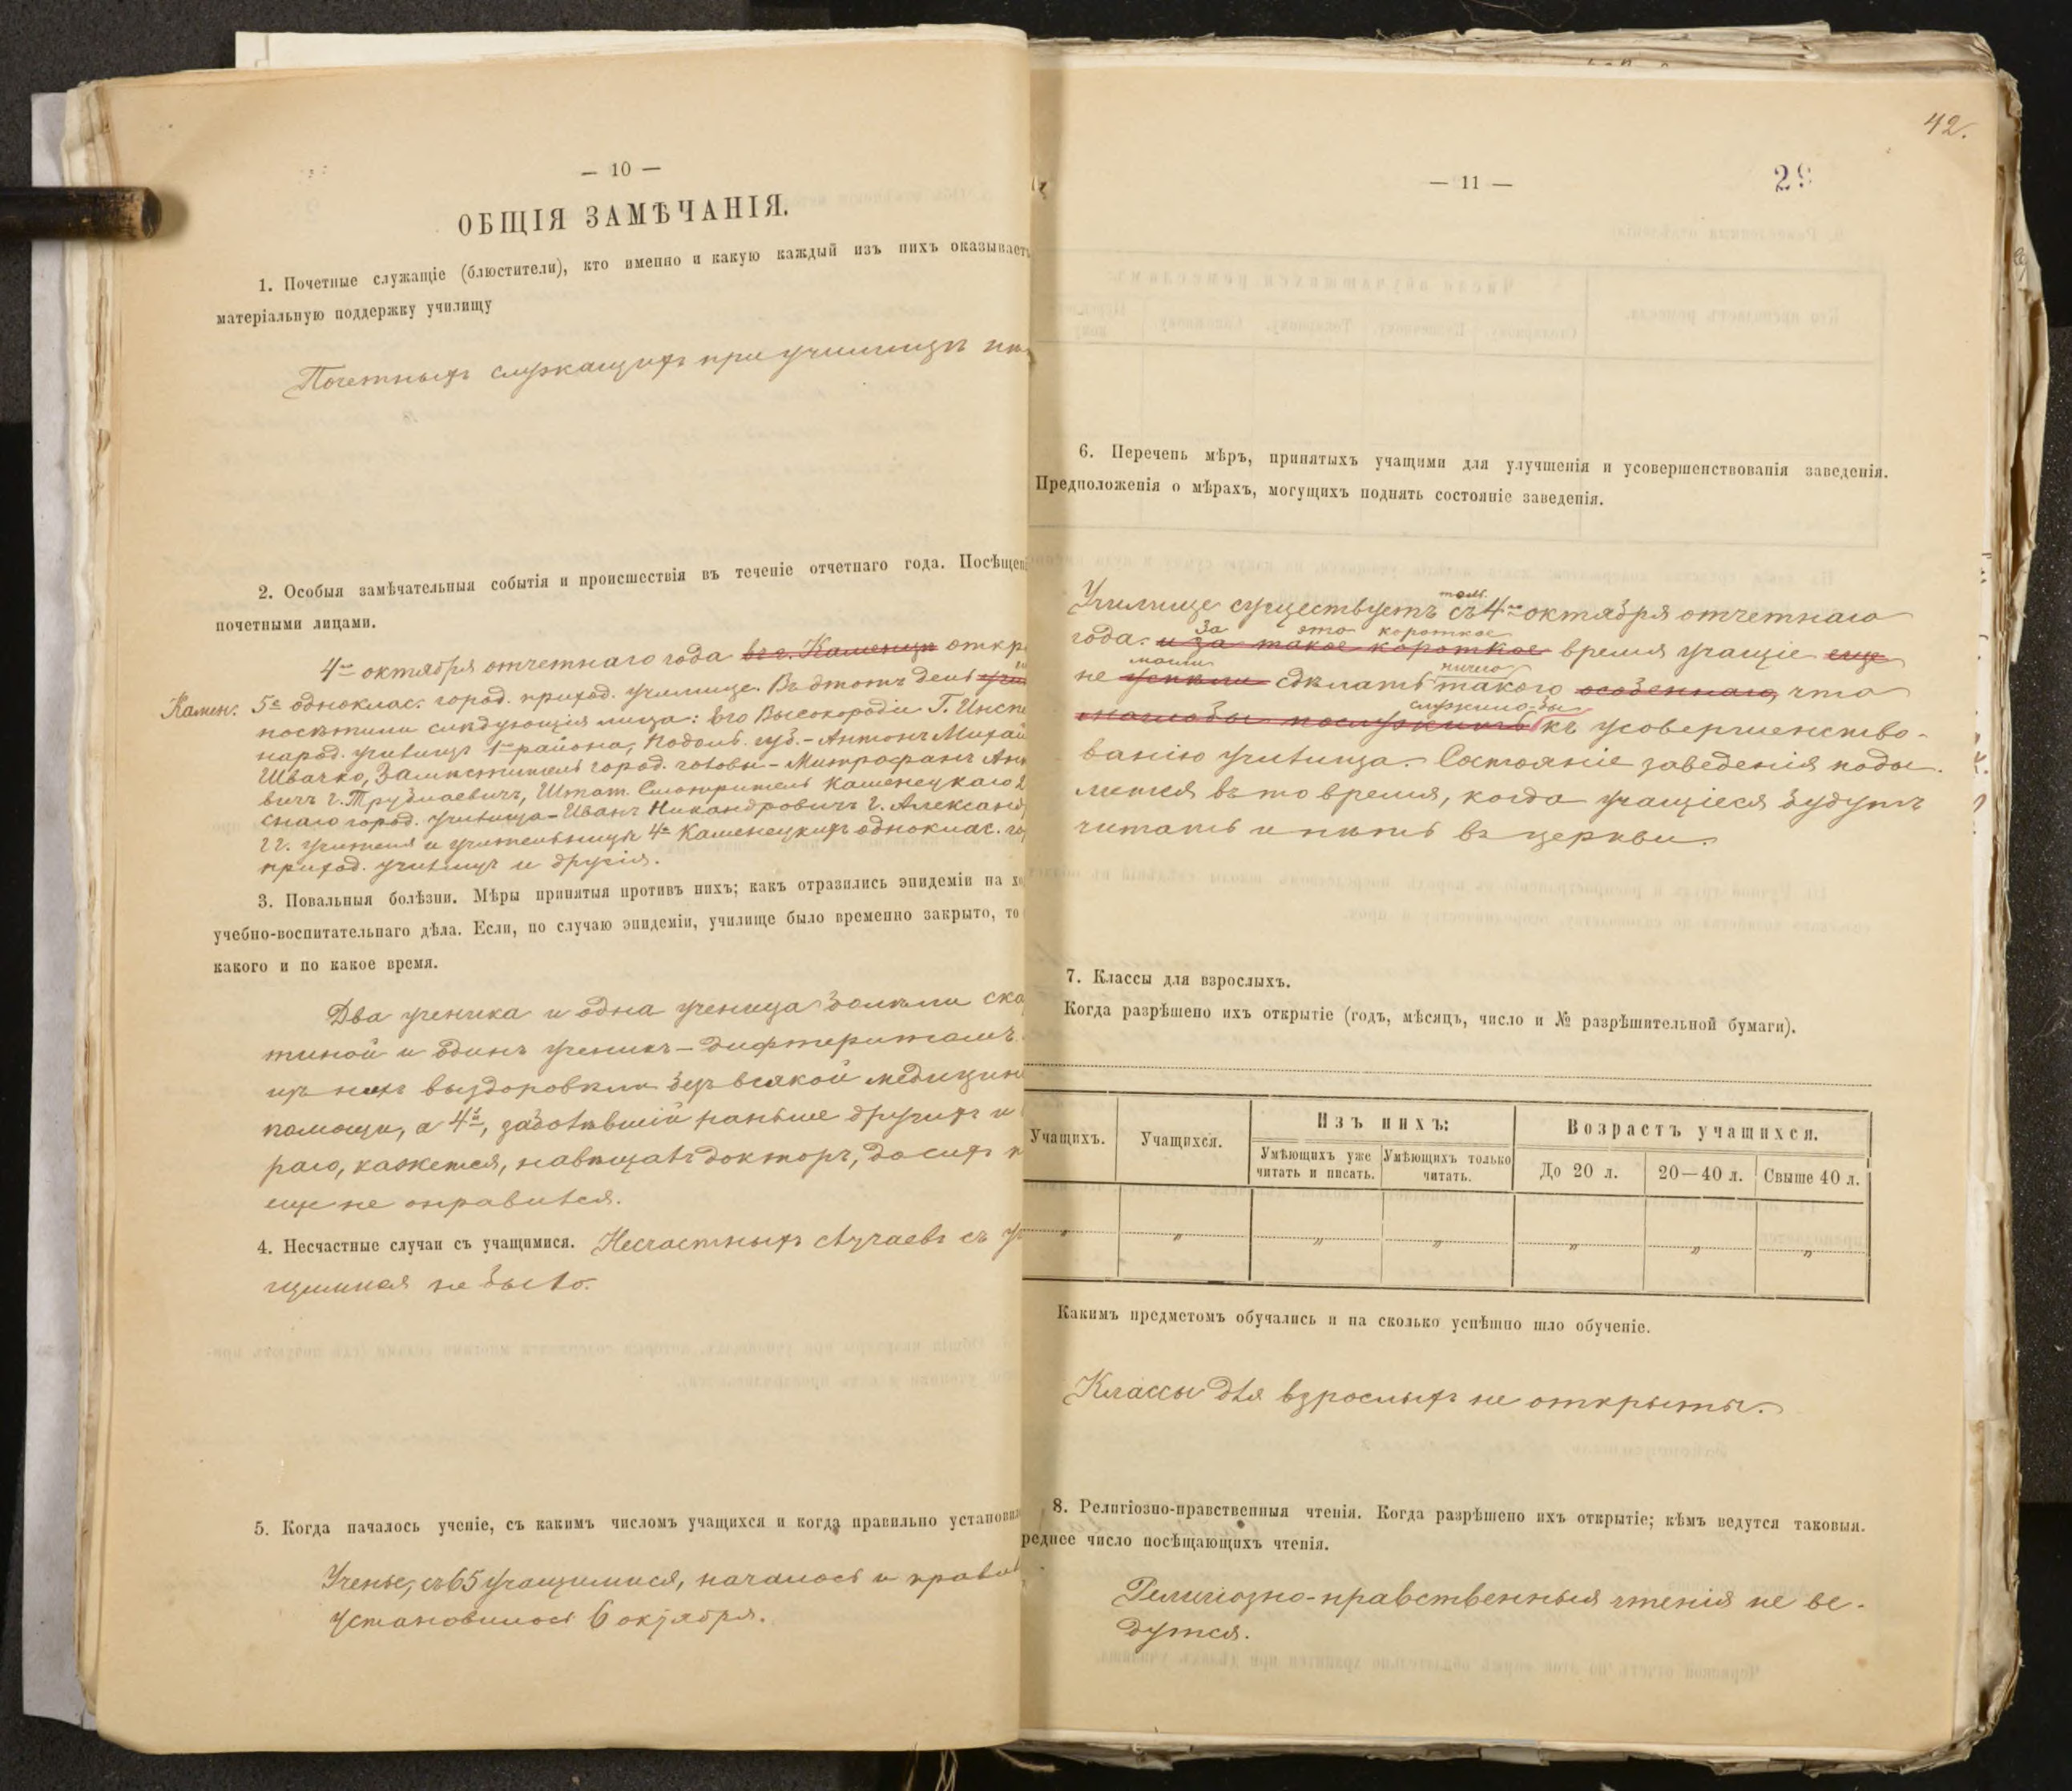 — 10 —
ОБЩІЯ ЗАМѢЧАНІЯ.
1. Почетные служащіе (блюстители), кто именно и какую каждый изъ нихъ оказываетъ
матеріальную поддержку училищу
Почетныхъ служащихъ при училищѣ
2. Особыя замѣчательныя событія и происшествія въ теченіе отчетнаго года. Посѣщен
почетными лицами.
4го октября отчетнаго года въ г. Каменцѣ откр
Камен. 5е однокла́с. город. приход. училище. Въ этотъ день
посѣтили слѣдующія лица: Его Высокородіе Г. Инспе
народ. училищъ 1го района, Подол. губ. – Антонъ Михай
Швачко, Замѣститель город. головы – Митрофанъ Ан
вичъ г. Трублаевичъ, Штат. Смотритель Каменецкаго 2
снаго город. училища – Иванъ Никандровичъ г. Александ
гг. учителя и учительницы 4хъ Каменецкихъ одноклас. го
приход. училищъ и другія.
3. Повальныя болѣзни. Мѣры принятыя противъ нихъ; какъ отразились эпидеміи на х
учебно-воспитательнаго дѣла. Если, по случаю эпидеміи, училище было временно закрыто, то
какого и по какое время.
Два ученика и одна ученица болѣли ска
тиной и одинъ ученикъ – дифтеритомъ.
изъ нихъ выздоровѣли безъ всякой медицин
помощи, а 4й, заболѣвшій раньше другихъ и
раго, кажется, навѣщалъ докторъ, до сихъ п
еще не оправился.
4. Несчастные случаи съ учащимися. Несчастныхъ случаевъ съ у
щимися не было.
5. Когда началось ученіе, съ какимъ числомъ учащихся и когда правильно установил
Ученье, съ 65 учащимися, началось и правил
установилось 6 октября.
42.
— 11 —
29
6. Перечень мѣръ, принятыхъ учащими для улучшенія и усовершенствованія заведенія.
Предположенія о мѣрахъ, могущихъ поднять состояніе заведенія.
тол.
Училище существуетъ съ 4го октября отчетнаго
За это короткое
года. и за такое короткое время учащіе еще
могли ничего
не успѣли сдѣлать такого особеннаго, что
служило-бы
могло бы послужить къ усовершенство-
ванію училища. Состояніе заведенія поды-
мется въ то время, когда учащіеся будутъ
читать и пѣть въ церкви.
7. Классы для взрослыхъ.
Когда разрѣшено ихъ открытіе (годъ, мѣсяцъ, число и № разрѣшительной бумаги).
Учащихъ. Учащихся. Изъ нихъ: Возрастъ учащихся.
Умѣющихъ уже читать и писать. Умѣющихъ только читать. До 20 л. 20—40 л. Свыше 40 л.
„ „ „ „ „ „ „
Какимъ предметомъ обучались и на сколько успѣшно шло обученіе.
Классы для взрослыхъ не открыты.
8. Религіозно-нравственныя чтенія. Когда разрѣшено ихъ открытіе; кѣмъ ведутся таковыя.
реднее число посѣщающихъ чтенія.
Религіозно-нравственныя чтенія не ве-
дутся.